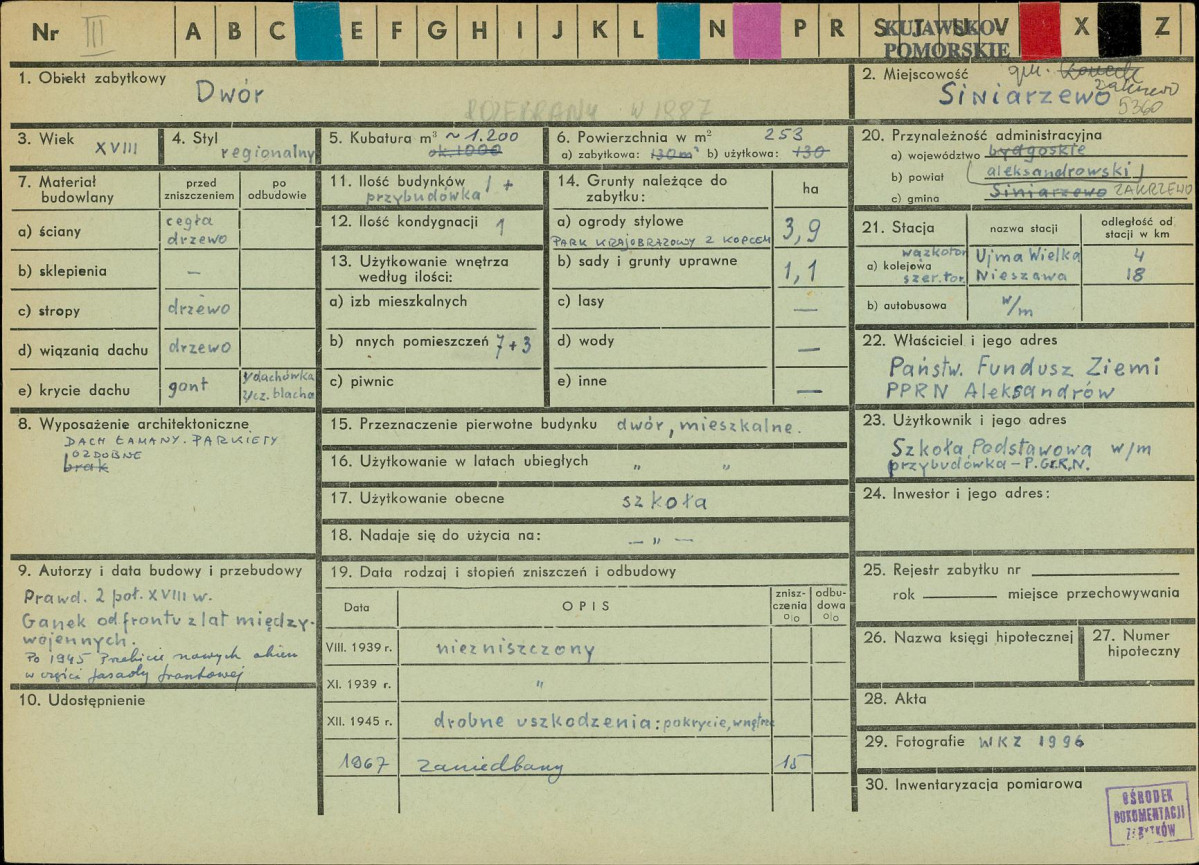 Nr III A B C E F G H I J K L N P R S T U V X Z
KUJAWSKO-
POMORSKIE
1. Obiekt zabytkowy
Dwór
ROZEBRANY W 1987
2. Miejscowość gm. Koneck
Zakrzewo
Siniarzewo
5360
3. Wiek XVIII
4. Styl
regionalny
5. Kubatura m³ ~ 1.200
ok. 1000
6. Powierzchnia w m² 253
a) zabytkowa: 130m² b) użytkowa: 130
20. Przynależność administracyjna
a) województwo bydgoskie
b) powiat aleksandrowski
c) gmina Siniarzewo ZAKRZEWO
7. Materiał
budowlany
przed
zniszczeniem
po
odbudowie
a) ściany cegła
drzewo
b) sklepienia —
c) stropy drzewo
d) wiązania dachu drzewo
e) krycie dachu gont
dachówka
cz. blacha
11. Ilość budynków 1 +
przybudówka
12. Ilość kondygnacji 1
13. Użytkowanie wnętrza
według ilości:
a) izb mieszkalnych
b) nnych pomieszczeń 7+3
c) piwnic
14. Grunty należące do
zabytku:
ha
a) ogrody stylowe 3,9
PARK KRAJOBRAZOWY Z KOPCEM
b) sady i grunty uprawne 1,1
c) lasy —
d) wody —
e) inne —
21. Stacja
nazwa stacji
odległość od
stacji w km
wązkotor. Ujma Wielka 4
a) kolejowa
szer.tor. Nieszawa 18
b) autobusowa w/m
22. Właściciel i jego adres
Państw. Fundusz Ziemi
PPRN Aleksandrów
8. Wyposażenie architektoniczne
DACH ŁAMANY. PARKIETY
OZDOBNE
brak
15. Przeznaczenie pierwotne budynku dwór, mieszkalne.
16. Użytkowanie w latach ubiegłych " "
17. Użytkowanie obecne szkoła
18. Nadaje się do użycia na: — " —
23. Użytkownik i jego adres
Szkoła Podstawowa w/m
przybudówka – P.Gr.R.N.
24. Inwestor i jego adres:
9. Autorzy i data budowy i przebudowy
Prawd. 2 poł. XVIII w.
Ganek od frontu z lat między-
wojennych.
Po 1945 Przebicie nowych okien
w części fasady frontowej
10. Udostępnienie
19. Data rodzaj i stopień zniszczeń i odbudowy
Data
OPIS
znisz-
czenia
o|o
odbu-
dowa
o|o
VIII. 1939 r. niezniszczony
XI. 1939 r. "
XII. 1945 r. drobne uszkodzenia: pokrycie, wnętrze
1967 zaniedbany 15
25. Rejestr zabytku nr
rok miejsce przechowywania
26. Nazwa księgi hipotecznej
27. Numer
hipoteczny
28. Akta
29. Fotografie WKZ 1996
30. Inwentaryzacja pomiarowa
OŚRODEK
DOKUMENTACJI
ZABYTKÓW